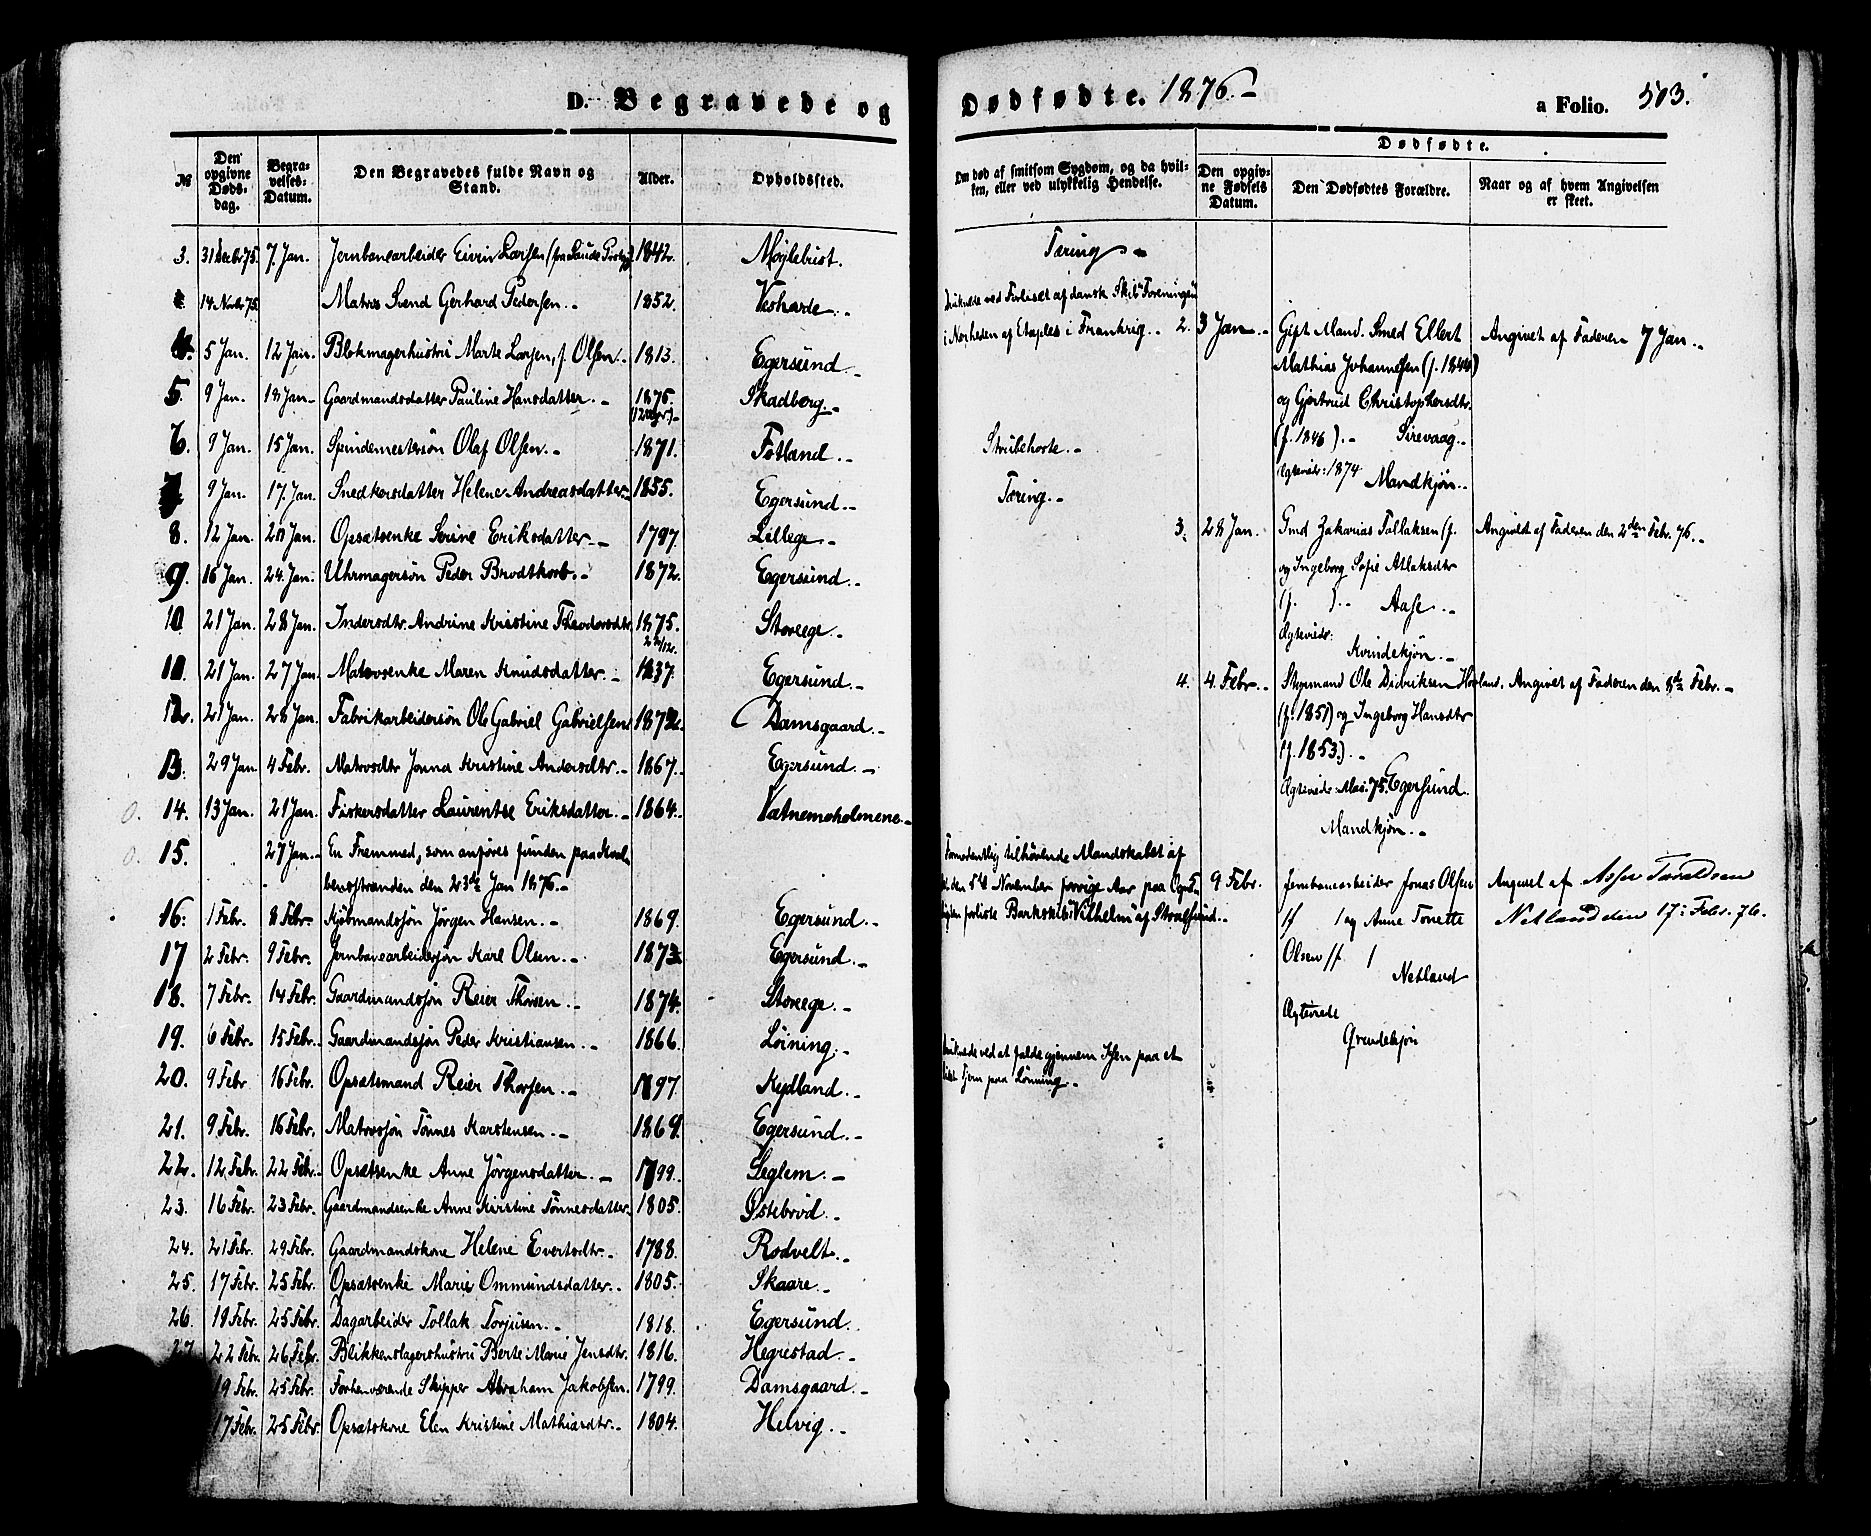 D. Begravede og
Dødfødte. 1876.-
a Folio. 503.
№
Den opgivne Døds-dag.
Begra-velses-Datum.
Den Begravedes fulde Navn og Stand.
Alder.
Opholdssted.
Om død af smitsom Sygdom, og da hvil-ken, eller ved ulykkelig Hendelse.
Dødfødte.
Den opgiv-ne Fødsels Datum.
Den Dødfødtes Forældre.
Naar og af hvem Angivelsen er skeet.
3. 31 Decbr 75. 7. Jan. Jernbanearbeider Eivin Larsen (fra 1842. Møglebust. Tæring.-
14 Novbr 75. Matros Svend Gerhard Pedersen.- 1852.
4. 5 Jan. 12 Jan. Blokmagerhustru Marte Larsen, f. Olsen.- 1813. Egersund.-
5. 9 Jan. 13 Jan.- Gaardmandsdatter Pauline Hansdatter.- 1875. Skadberg.-
6. 9 Jan. 15 Jan. Olaf Olsen.- 1871. Fotland.- Strubehoste.-
7. 9 Jan. 17. Jan. Snedkersdatter Helene Andreasdatter.- 1855. Egersund.- Tæring.-
8. 12 Jan. 20 Jan. Opsætsenke Serine Eriksdatter.- 1797. Lillege.-
9. 16 Jan. 24. Jan. Uhrmagersøn Peder Brodtkorb.- 1872. Egersund.-
10 21 Jan. 28 Jan. Indersdtr. Andrine Kristine Theodorsdtr. 1875. Storeege.-
11. 21 Jan. 27 Jan. Matrosenke Maren Knudsdatter.- 1837. Egersund.-
12. 21 Jan. 28 Jan. Fabrikarbeidersøn Ole Gabriel Gabrielsen. Damsgaard.-
13. 29 Jan 4 Febr. Matrosdtr Jonna Kristine Andersdtr.- 1867. Egersund.-
14. 13 Jan. 21 Jan. Fiskersdatter Laurentse Eriksdatter.- 1864. Vatnemoholmene.-
15. 27 Jan.- En Fremmed, som anføres funden paa
den 23de Jan 1876.-
16. 1 Febr. 8 Febr. Kjøbmandssøn Jørgen Hansen.- 1869. Egersund.-
17 2 Febr. 9 Febr. Jernbanearbeidersøn Karl Olsen.- 1873. Egersund.-
18. 7 Febr. 14 Febr. Gaardmandssøn Reier Thorsen.- 1874. Storeege.-
19. 6 Febr. 15 Febr. Gaardmandssøn Peder Kristiansen.- 1866. Løining.-
20. 9 Febr 16 Febr. Opsætsmand Reier Thorsen.- 1797. Kydland.-
21. 9 Febr. 16 Febr. Matrossøn Tønnes Karstensen.- 1869. Egersund.-
22. 12 Febr. 22 Febr. Opsætsenke Anne Jørgensdatter.- 1799. Seglem.-
23. 16 Febr. 23 Febr. Gaardmandsenke Anne Kristine Tønnesdatter. 1805. Østebrød.-
24. 21 Febr. 29 Febr. Gaardmandskone Helene Evertsdtr.- 1788. Rodvelt.-
25. 17 Febr. 25 Febr. Opsætsenke Marie Ommundsdatter.- 1805. Skaare.-
26. 19 Febr. 25 Febr. Dagarbeider Tollak Torjusen.- 1818. Egersund.
27 22 Febr. 26 Febr. Blikkenslagerhustru Berte Marie Jensdtr. 1816. Hegrestad.-
19 Febr. 25 Febr. Forhenværende Skipper Abraham Jakobsen. 1799. Damsgaard.-
17 Febr. 25 Febr. Opsætskone Elen Kristine Mathiasdtr.- 1804. Helvig.-
ved Forliset af dansk Skib
i Nærheden af Etaples i Frankrig.-
Formodentlig tilhørende Mandskabet af
den 5te November forrige Aar paa
forliste Barkskib "Vilhelm" af Stralsund.-
ved at falde gjennem Isen paa et
Tjern paa Lønning.-
2. 3 Jan.- Gift Mand. Smed Ellert Angivet af Faderen 7 Jan.-
Mathias Johannesen (f. 1844)
og Gjertrud Christophersdtr.
(f. 1846).- Sirevaag.-
Ægteviede: 1874 Mandkjøn.-
3. 28 Jan. Gmd Zakarias Tollaksen (f. Angivet af Faderen den 2den Febr. 76.-
og Ingeborg Sofie Atlaksdtr
(f. ).- Aase.-
Ægteviede:
Kvindekjøn.-
4. 4. Febr.- Ole Didriksen Hovland. Angivet af Faderen den 8de Febr.-
(f. 1851) og Ingeborg Hansdtr
(f. 1853).-
Ægteviede: 75. Egersund.
Mandkjøn.-
9 Febr. Jernbanearbeider Jonas Olsen Angivet af
(f ) og Anne Tonette Netland den 17: Febr. 76.
Olsen (f )
Netland
Ægteviede